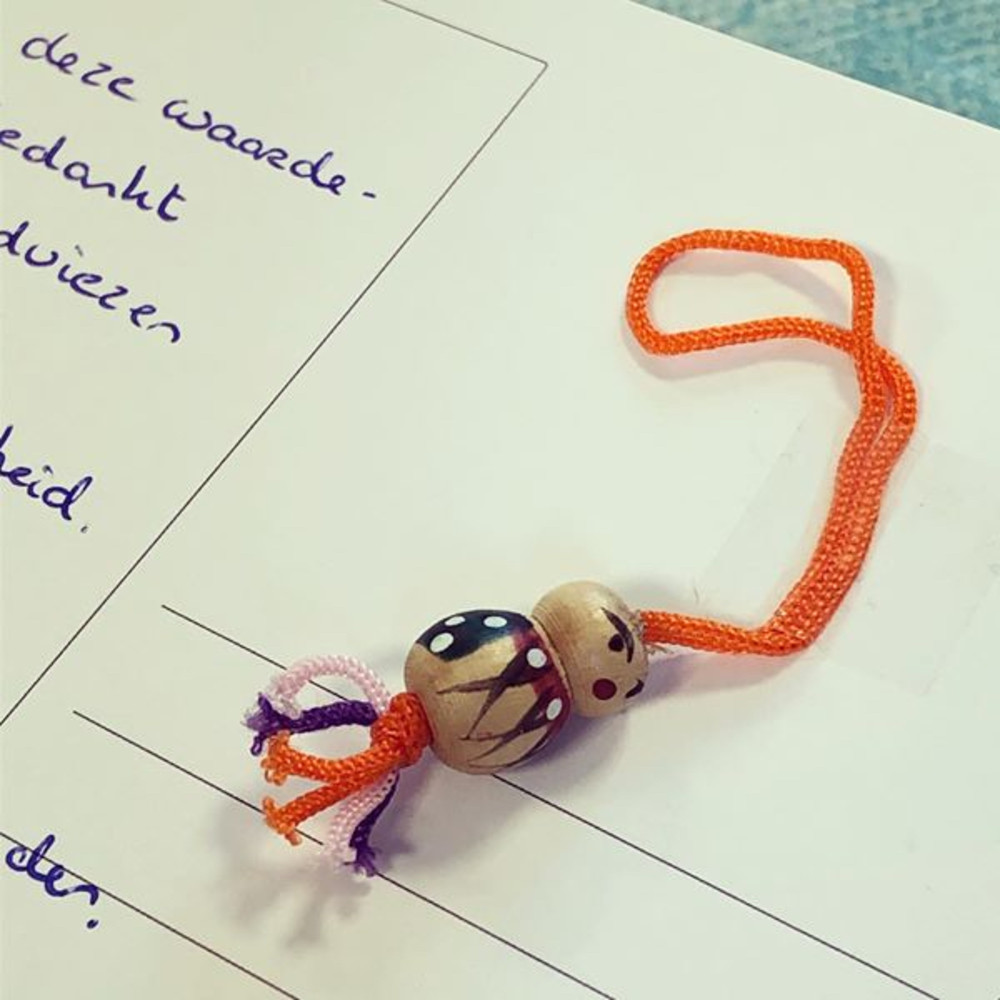 deze waarde-
edankt
dviezen
heid.
der.